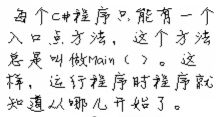 每个C#程序只能有一个
入口点方法，这个方法
总是叫做Main（）。这
样，运行程序时程序就
知道从哪儿开始了。